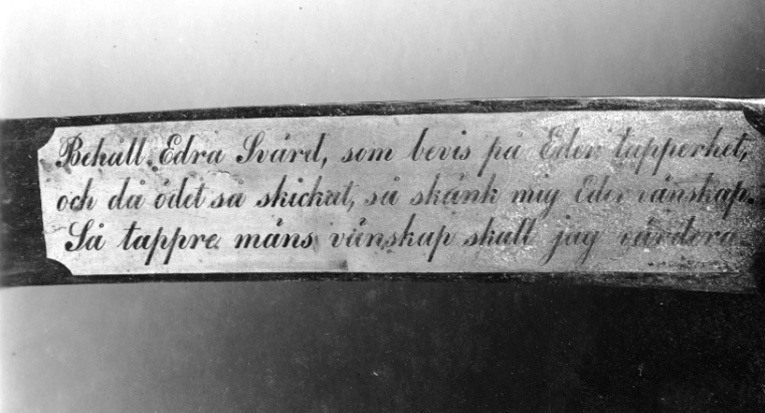 Behåll Edra Svärd, som bevis på Eder tapperhet,
och då ödet så skickat, så skänk mig Eder vänskap.
Så tappre mäns vänskap skall jag värdera